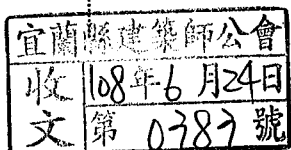 宜蘭縣建築師公會
收文
108年6月24日
第 0383 號